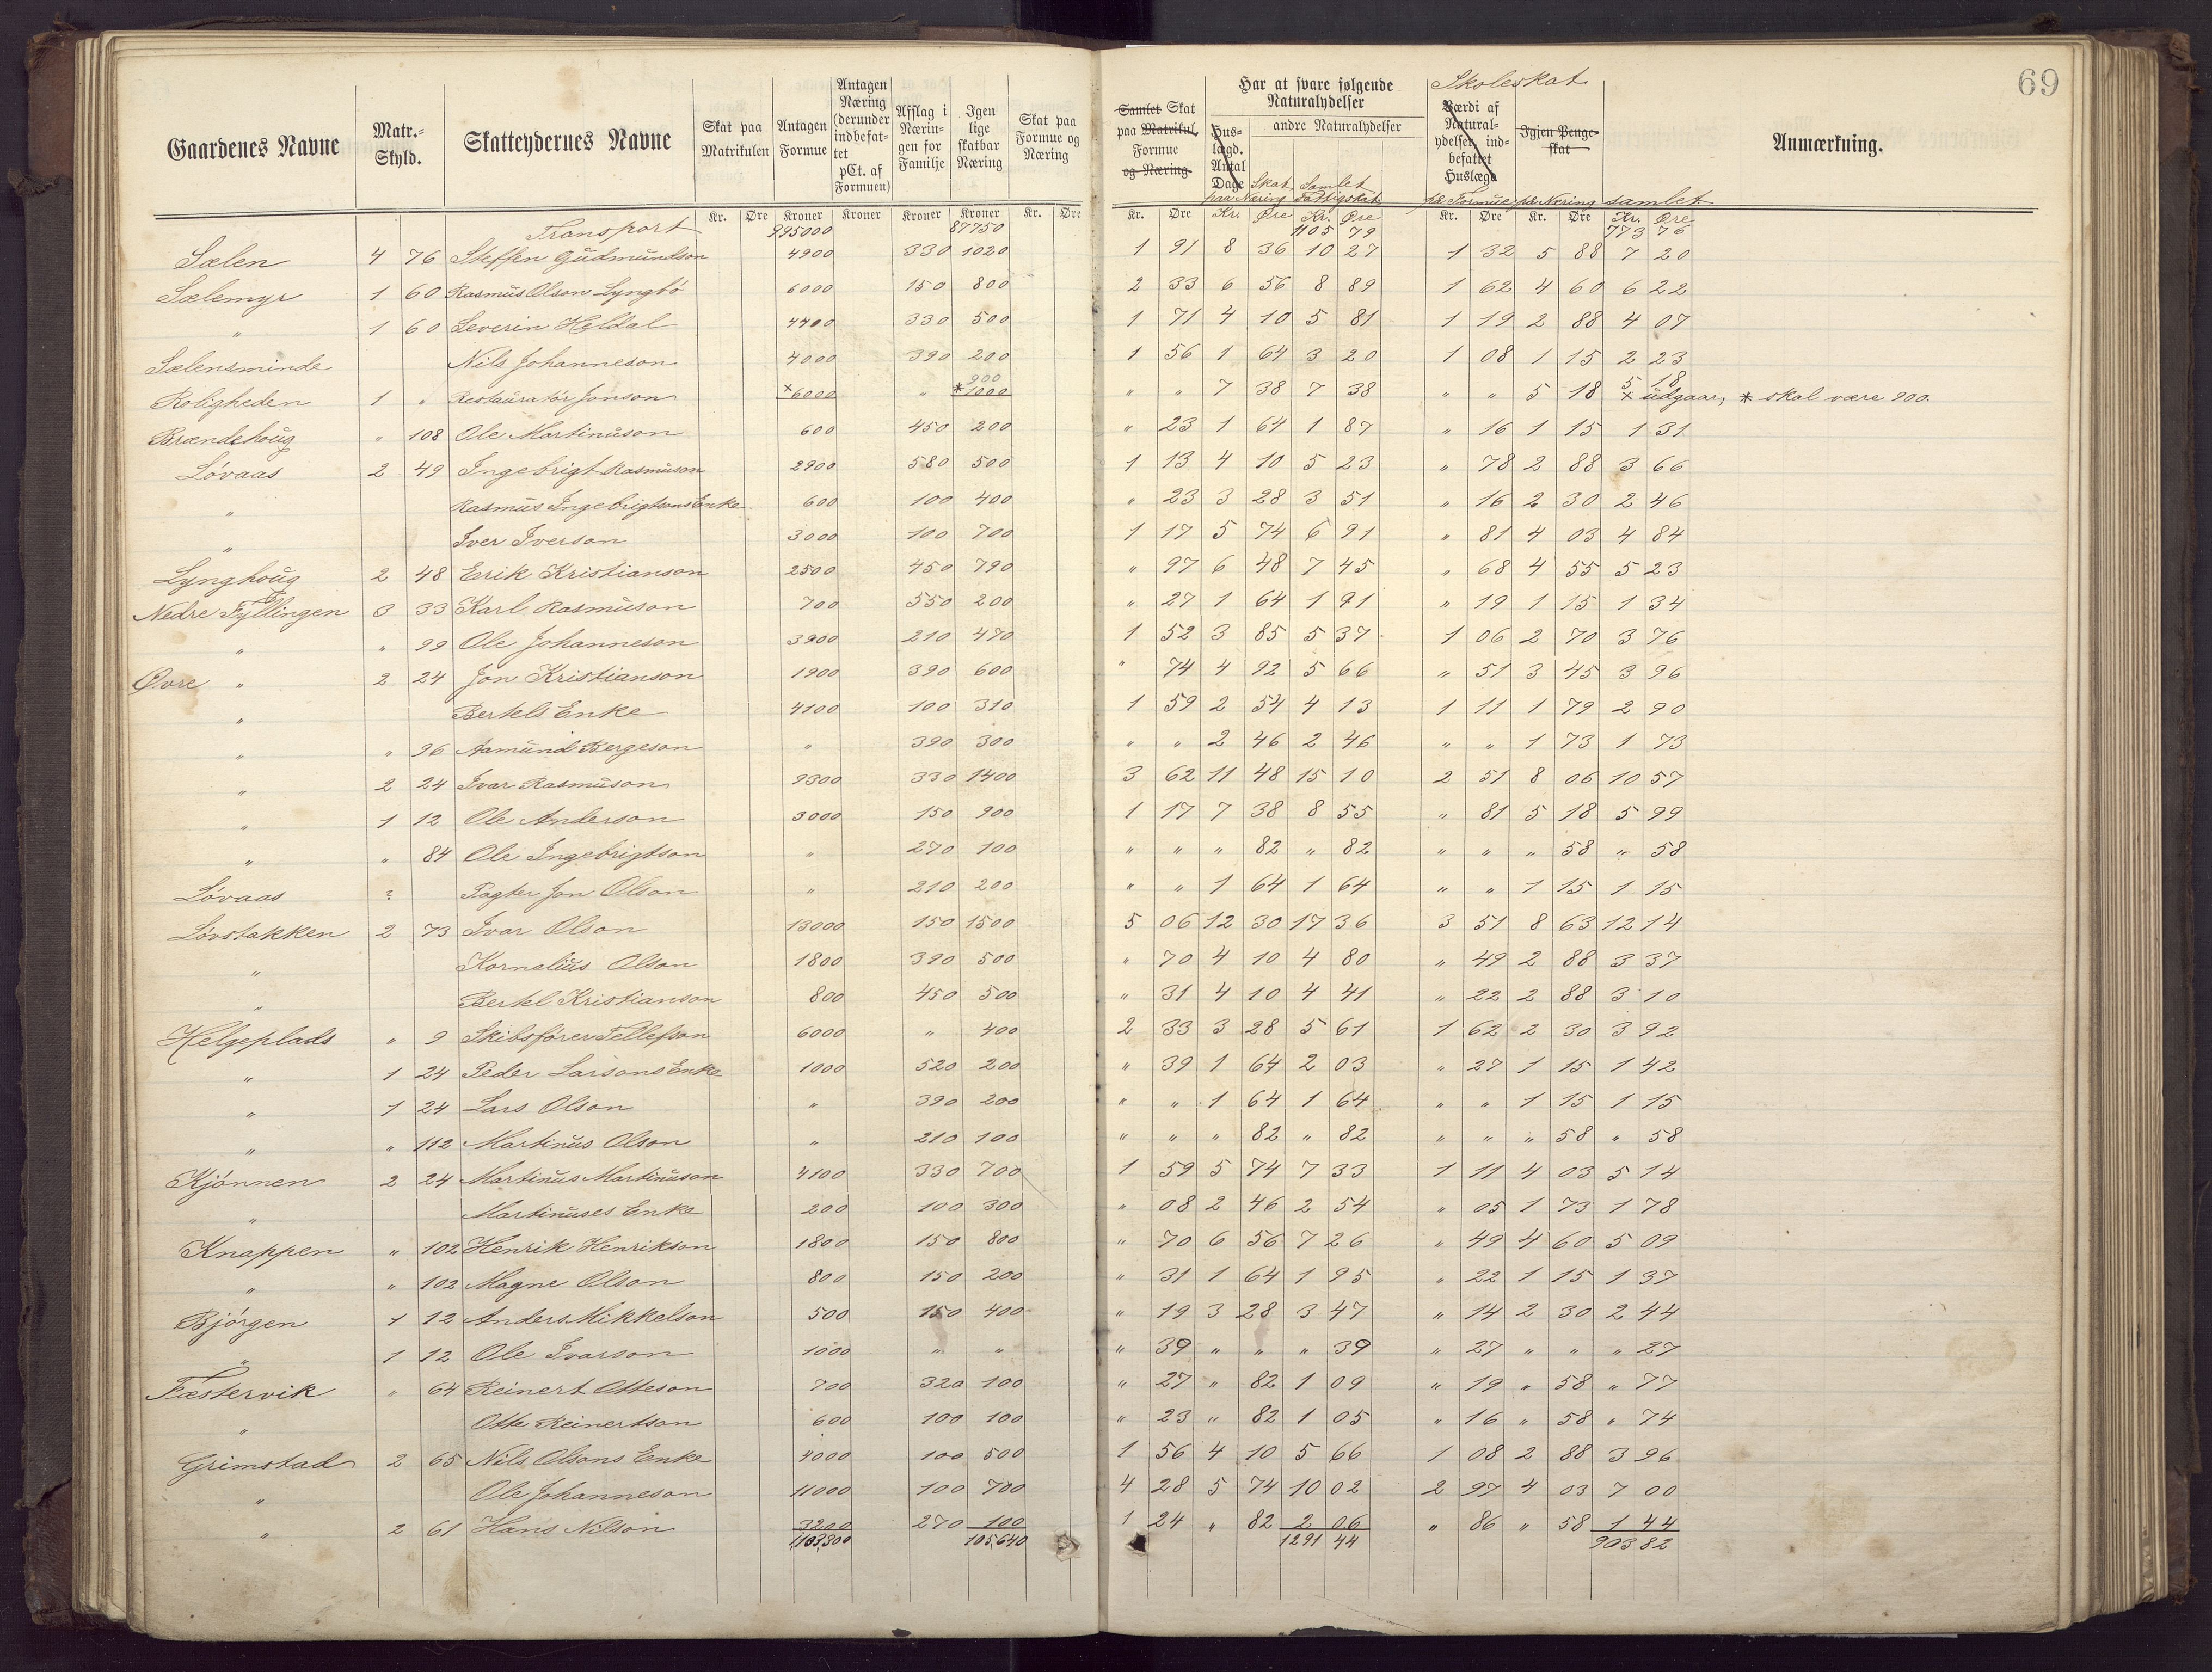 69
Gaardenes Navne | Matr.-Skyld. | Skatteydernes Navne | Skat paa Matrikulen | Antagen Formue | Antagen Næring (derunder indbefattet pCt. af Formuen) | Afslag i Næringen for Familje | Igen lige skatbar Næring | Skat paa Formue og Næring | Samlet Skat paa Matrikul, Formue og Næring. | Har at svare følgende Naturalydelser | Huslægd. Antal Dage | andre Naturalydelser | Skat paa Næring | Samlet Fattigskat | Skoleskat | Værdi af Naturalydelser, indbefattet Huslægd | Igjen Pengeskat | pr Formue | pr Næring | samlet | Anmærkning.
Kr. Øre Kroner Kroner Kroner Kroner Kr. Øre Kr. Øre Kr. Øre Kr. Øre Kr. Øre Kr. Øre Kr. Øre
Transport 995000 87750 1105 79 773 76
Sælen 4 76 Steffen Gudmundson 4900 330 1020 1 91 8 36 10 27 1 32 5 88 7 20
Sælemyr 1 60 Rasmus Olson Lyngbö 6000 150 800 2 33 6 56 8 89 1 62 4 60 6 22
" 1 60 Severin Heldal 4400 330 500 1 71 4 10 5 81 1 19 2 88 4 07
Sælensminde Nils Johanneson 4000 390 200 1 56 1 64 3 20 1 08 1 15 2 23
Roligheden 1 " Restauratör Jonson × 6000 " 900 * 1000 " " 7 38 7 38 " " 5 18 5 18 × udgaar, * skal være 900.
Brændehoug " 108 Ole Martinuson 600 450 200 " 23 1 64 1 87 " 16 1 15 1 31
Lövaas 2 49 Ingebrigt Rasmuson 2900 580 500 1 13 4 10 5 23 " 78 2 88 3 66
" Rasmus Ingebrigtsons Enke 600 100 400 " 23 3 28 3 51 " 16 2 30 2 46
" Iver Iverson 3000 100 700 1 17 5 74 6 91 " 81 4 03 4 84
Lynghoug 2 48 Erik Kristianson 2500 450 790 " 97 6 48 7 45 " 68 4 55 5 23
Nedre Fyllingen 3 33 Karl Rasmuson 700 550 200 " 27 1 64 1 91 " 19 1 15 1 34
" " 99 Ole Johanneson 3900 210 470 1 52 3 85 5 37 1 06 2 70 3 76
Øvre " 2 24 Jon Kristianson 1900 390 600 " 74 4 92 5 66 " 51 3 45 3 96
" Bertels Enke 4100 100 310 1 59 2 54 4 13 1 11 1 79 2 90
" " 96 Aamund Bergeson " 390 300 " " 2 46 2 46 " " 1 73 1 73
" 2 24 Ivar Rasmuson 9300 330 1400 3 62 11 48 15 10 2 51 8 06 10 57
" 1 12 Ole Anderson 3000 150 900 1 17 7 38 8 55 " 81 5 18 5 99
" " 84 Ole Ingebrigtson " 270 100 " " " 82 " 82 " " " 58 " 58
Lövaas ? Pagter Jon Olson " 210 200 " " 1 64 1 64 " " 1 15 1 15
Lövstakken 2 73 Ivar Olson 13000 150 1500 5 06 12 30 17 36 3 51 8 63 12 14
" Kornelius Olson 1800 390 500 " 70 4 10 4 80 " 49 2 88 3 37
" Bertel Kristianson 800 450 500 " 31 4 10 4 41 " 22 2 88 3 10
Helgeplads " 9 Skibsförer Tellefson 6000 " 400 2 33 3 28 5 61 1 62 2 30 3 92
" 1 24 Peder Larsons Enke 1000 520 200 " 39 1 64 2 03 " 27 1 15 1 42
" 1 24 Lars Olson " 390 200 " " 1 64 1 64 " " 1 15 1 15
" " 112 Martinus Olson " 210 100 " " " 82 " 82 " " " 58 " 58
Kjönnen 2 24 Martinus Martinuson 4100 330 700 1 59 5 74 7 33 1 11 4 03 5 14
" Martinuses Enke 200 100 300 " 08 2 46 2 54 " 05 1 73 1 78
Knappen " 102 Henrik Henrikson 1800 150 800 " 70 6 56 7 26 " 49 4 60 5 09
" " 102 Magne Olson 800 150 200 " 31 1 64 1 95 " 22 1 15 1 37
Bjørgen 1 12 Anders Mikkelson 500 150 400 " 19 3 28 3 47 " 14 2 30 2 44
" 1 12 Ole Ivarson 1000 " " " 39 " " " 39 " 27 " " " 27
Fæstervik " 64 Reinert Otteson 700 320 100 " 27 " 82 1 09 " 19 " 58 " 77
" Otte Reinertson 600 100 100 " 23 " 82 1 05 " 16 " 58 " 74
Grimstad 2 65 Nils Olsons Enke 4000 100 500 1 56 4 10 5 66 1 08 2 88 3 96
" Ole Johanneson 11000 100 700 4 28 5 74 10 02 2 97 4 03 7 00
" 2 61 Hans Nilson 3200 270 100 1 24 " 82 2 06 " 86 " 58 1 44
1103,300 105,640 1291 44 903 82